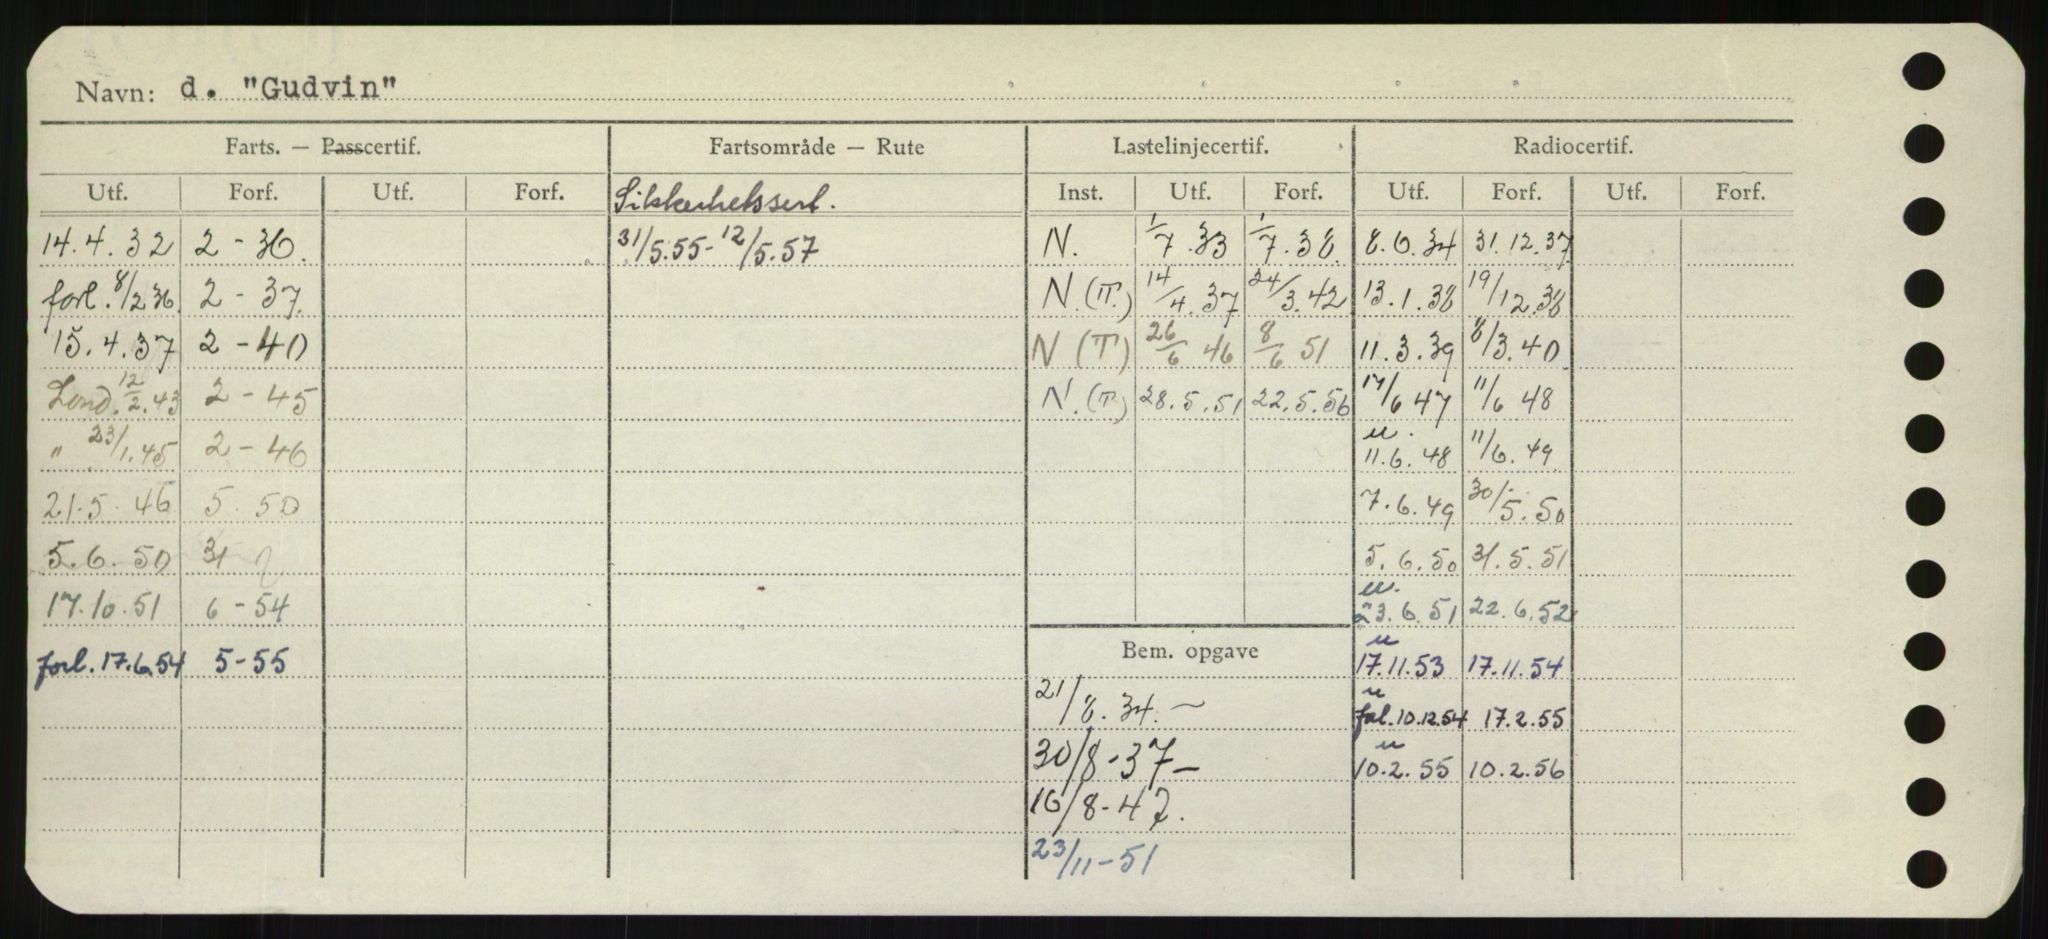 Navn: d. "Gudvin"
Farts. — Passcertif. Fartsområde — Rute Lastelinjecertif. Radiocertif.
Utf. Forf. Utf. Forf. Sikkerhetssert. Inst. Utf. Forf. Utf. Forf. Utf. Forf.
14.4.32 2-36. 31/5.55-12/5.57 N. 1/7.33 1/7.38. 8.6.34 31.12.37
forl. 8/2 36. 2-37. N.(T.) 14/4.37 24/3.42 13.1.38 19/12.38
15.4.37 2-40 N (T) 26/6 46 8/6 51 11.3.39 8/3.40
Lond. 12/2.43 2-45 N.(T) 28.5.51 22.5.56 17/6 47 11/6 48
" 23/1.45 2-46 u. 11.6.48 11/6.49
21.5.46 5.50 7.6.49 30/5.50
5.6.50 31 5.6.50 31.5.51
17.10.51 6-54 u. 23.6.51 22.6.52
forl. 17.6.54 5-55 Bem. opgave u 17.11.53 17.11.54
21/8.34. — u fal. 10.12.54 17.2.55
30/8-37— u 10.2.55 10.2.56
16/8-47.
23/11-51